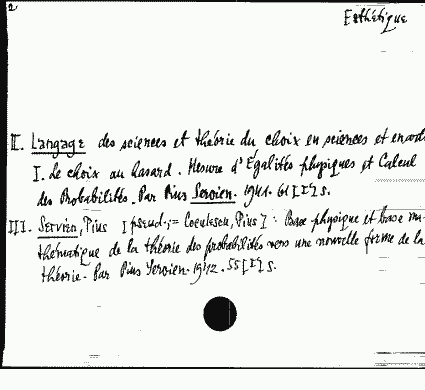 2
Esthétique
II. Langage des sciences et théorie du choix en sciences et en art.
I. Le choix au hasard. Mesure d'Égalités physiques et Calcul
des Probabilités. Par Pius Servien. 1941. 61 [I] S.
III. Servien, Pius [pseud.; = Coculescu, Pius]: Base physique et base ma-
thématique de la théorie des probabilités vers une nouvelle forme de la
théorie. Par Pius Servien. 1942. 55 [I] S.